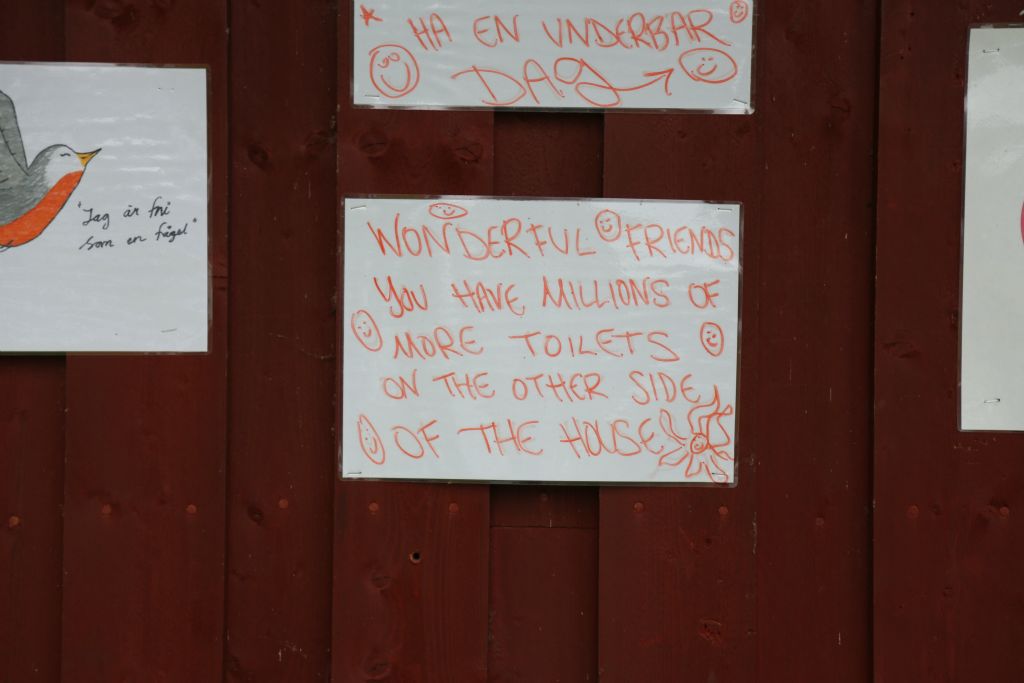 HA EN UNDERBAR
DAG
"Jag är fri
som en fågel"
WONDERFUL FRIENDS
YOU HAVE MILLIONS OF
MORE TOILETS
ON THE OTHER SIDE
OF THE HOUSE